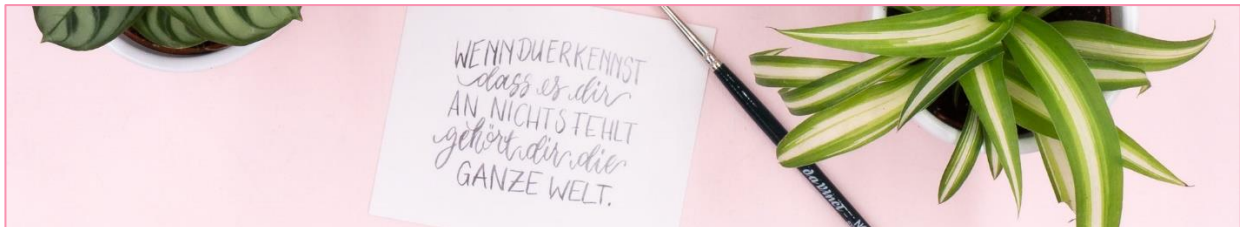 WENN DU ERKENNST
dass es dir
AN NICHTS FEHLT
gehört dir die
GANZE WELT.
da Vinci